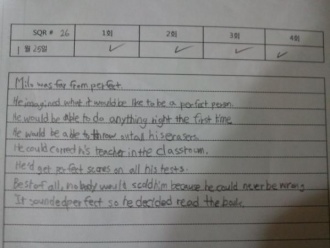 SQR # 26 1회 2회 3회 4회
1월 25일 ✓ ✓ ✓ ✓
Milo was far from perfect.
He imagined what it would be like to be a perfect person.
He would be able to do anything right the first time
He would be able to throw out all his erasers.
He could correct his teacher in the classroom.
He'd get perfect scores on all his tests.
Best of all, nobody would scold him because he could never be wrong
It sounded perfect so he decided read the book.